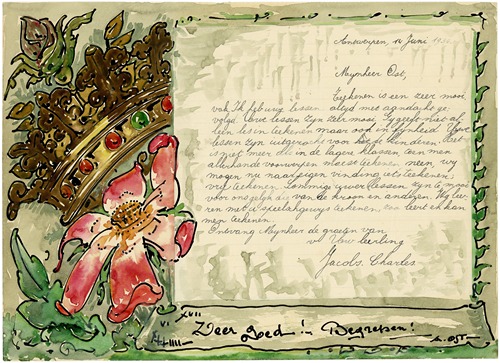 Antwerpen, 14 Juni
Mynheer Ost,
Teekenen is een zeer mooi
vak. Ik heb uwe lessen altyd met aandacht ge
volgd. Uwe lessen zyn zeer mooi. Zy geeft niet al
leen les in teekenen maar ook in fynheid. Uwe
lessen zyn uitgerust voor kinderen. Het
is niet meer als in de lagere klassen dan men
allerhande voorwerpen moest teekenen neen wy
mogen nu naar eigen vinding iets teekenen,
vry teekenen. Sommige uwer lessen zyn te mooi
voor ons gelyk die van de kroon en anderen. Wy lee
ren met te teekenen, leert en kan
men teekenen.
Ontvang Mynheer de groeten van
Uwe leerling
Jacobs Charles
XVII
VI
Zeer goed! in Begrepen!
A. OST